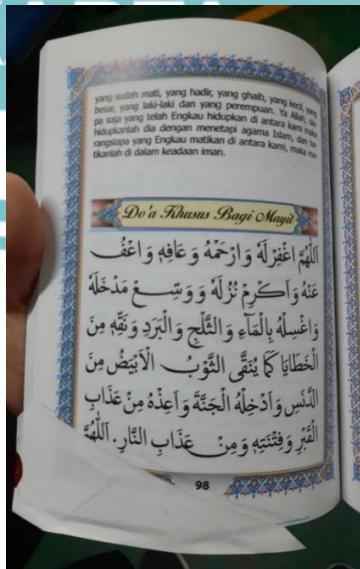 yang sudah mati, yang hadir, yang ghaib, yang kecil, yang
besar, yang laki-laki dan yang perempuan. Ya Allah, sia-
pa saja yang telah Engkau hidupkan di antara kami maka
hidupkanlah dia dengan menetapi agama Islam, dan ba-
rangsiapa yang Engkau matikan di antara kami, maka ma-
tikanlah di dalam keadaan iman.
Do'a Khusus Bagi Mayit
اَللّٰهُمَّ اغْفِرْ لَهُ وَارْحَمْهُ وَعَافِهِ وَاعْفُ
عَنْهُ وَاَكْرِمْ نُزُلَهُ وَوَسِّعْ مَدْخَلَهُ
وَاغْسِلْهُ بِالْمَاءِ وَالثَّلْجِ وَالْبَرَدِ وَنَقِّهِ مِنَ
الْخَطَايَا كَمَا يُنَقَّى الثَّوْبُ الْاَبْيَضُ مِنَ
الدَّنَسِ وَاَدْخِلْهُ الْجَنَّةَ وَاَعِذْهُ مِنْ عَذَابِ
الْقَبْرِ وَفِتْنَتِهِ وَمِنْ عَذَابِ النَّارِ. اَللّٰهُمَّ
98